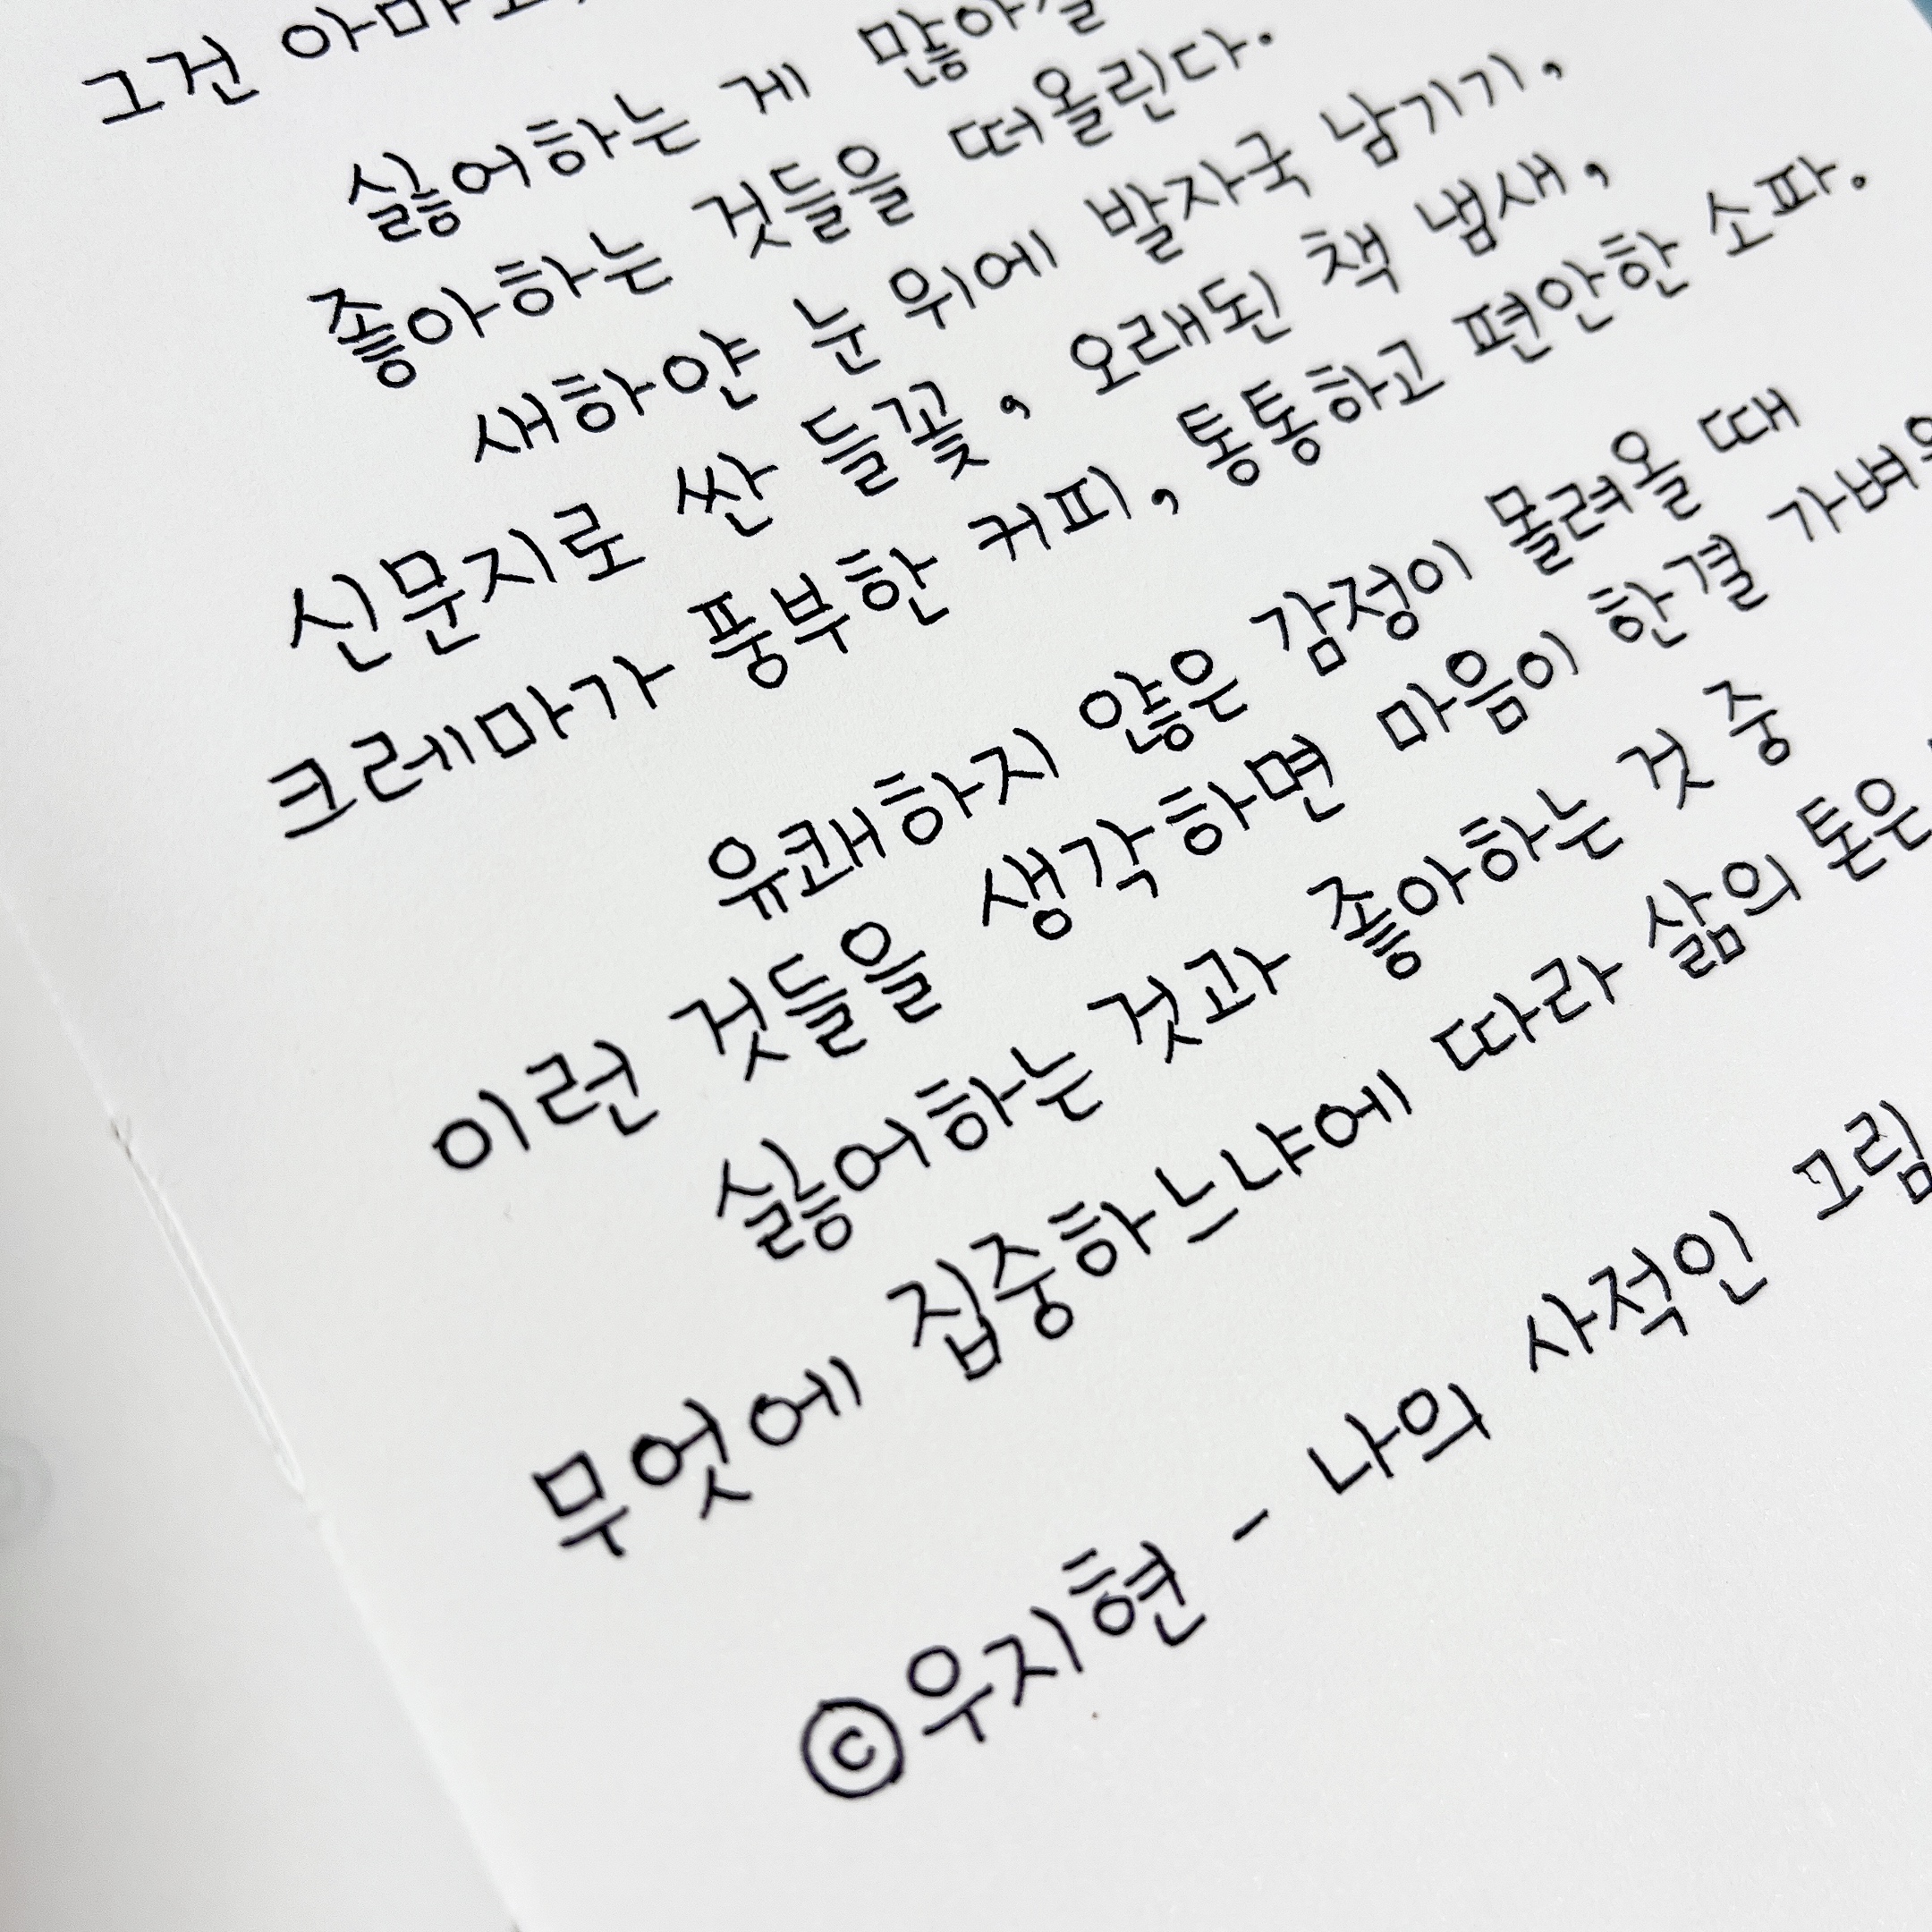 그건
싫어하는 게
좋아하는 것들을 떠올린다.
새하얀 눈 위에 발자국 남기기,
신문지로 싼 들꽃, 오래된 책 냄새,
크레마가 풍부한 커피, 통통하고 편안한 소파.
유쾌하지 않은 감정이 몰려올 때
이런 것들을 생각하면 마음이 한결
싫어하는 것과 좋아하는 것 중
무엇에 집중하느냐에 따라 삶의 톤은
©우지현 - 나의 사적인 그림